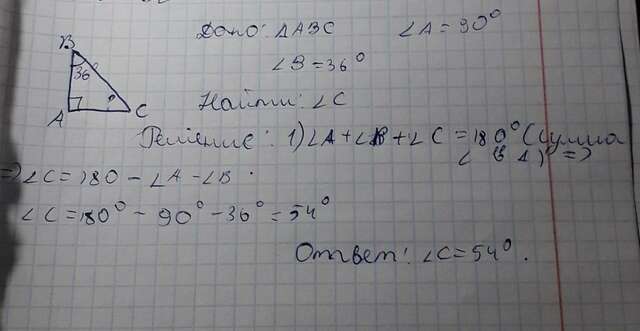 Дано: ΔABC ∠A = 90°
∠B = 36°
B
36°
A
?
C
Найти: ∠C
Решение: 1) ∠A + ∠B + ∠C = 180° (сумма
∠ в Δ) =>
=> ∠C = 180 - ∠A - ∠B.
∠C = 180° - 90° - 36° = 54°
Ответ: ∠C = 54°.